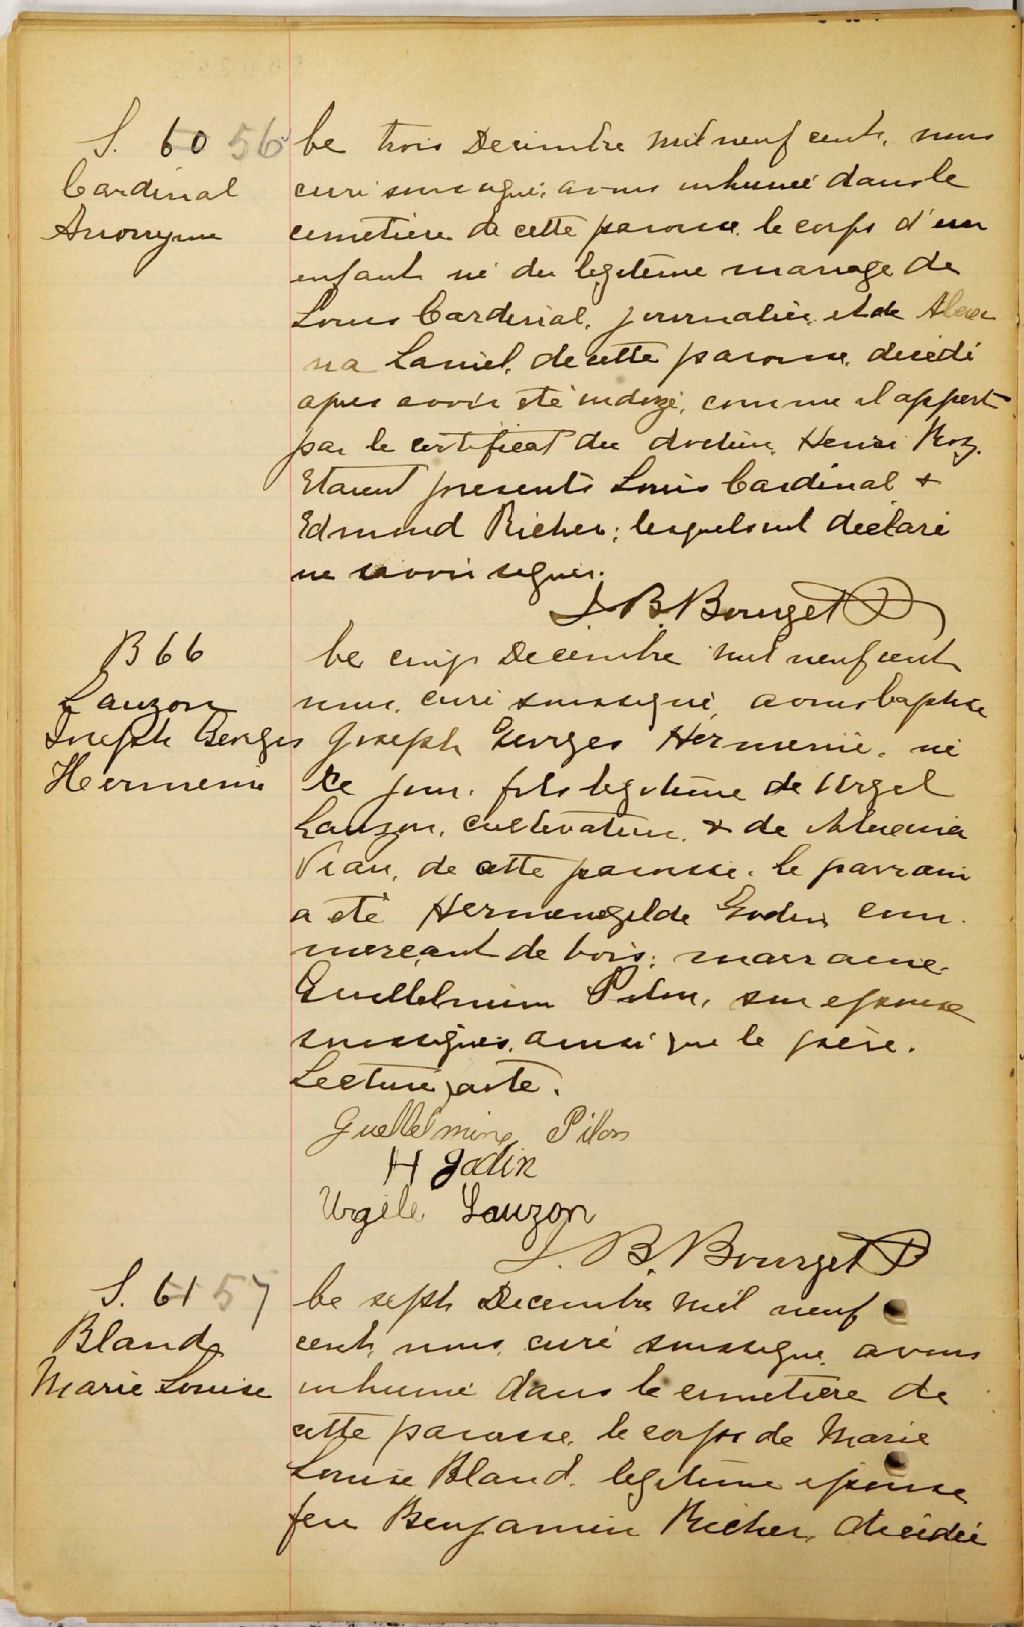 S. 60 56
Cardinal
Anonyme
Le trois Decembre mil neuf cent, nous
curé soussigné, avons inhumé dans le
cemetière de cette paroisse, le corps d'un
enfant né du legitime mariage de
Louis Cardinal, journalier, et de Alexi
na Laniel, de cette paroisse, decedé
apres avoir été ondoyé, comme il appert
par le certificat du docteur Henri Roy.
Etaient presents Louis Cardinal +
Edmond Richer; lesquels ont déclaré
ne savoir signer.
J. B. Bourget P
B 66
Lauzon
Joseph Georges
Hermenie
Le cinq Decembre mil neuf cent
nous, curé soussigné, avons baptisé
Joseph Georges Hermenie, né
ce jour, fils legitime de Urgel
Lauzon, cultivateur, + de
Viau, de cette paroisse. Le parrain
a été Hermenegilde Godin, com
merçant de bois; marraine
Guellelmine Pilon, son epouse
soussignés, ainsi que le père.
Lecture faite.
Guellelmine Pilon
H Godin
Urgele Lauzon
J. B. Bourget P
S. 61 57
Bland
Marie Louise
Le sept Decembre mil neuf
cent, nous, curé soussigné, avons
inhumé dans le cemetière de
cette paroisse, le corps de Marie
Louise Bland, legitime epouse
feu Benjamin Richer, decedée